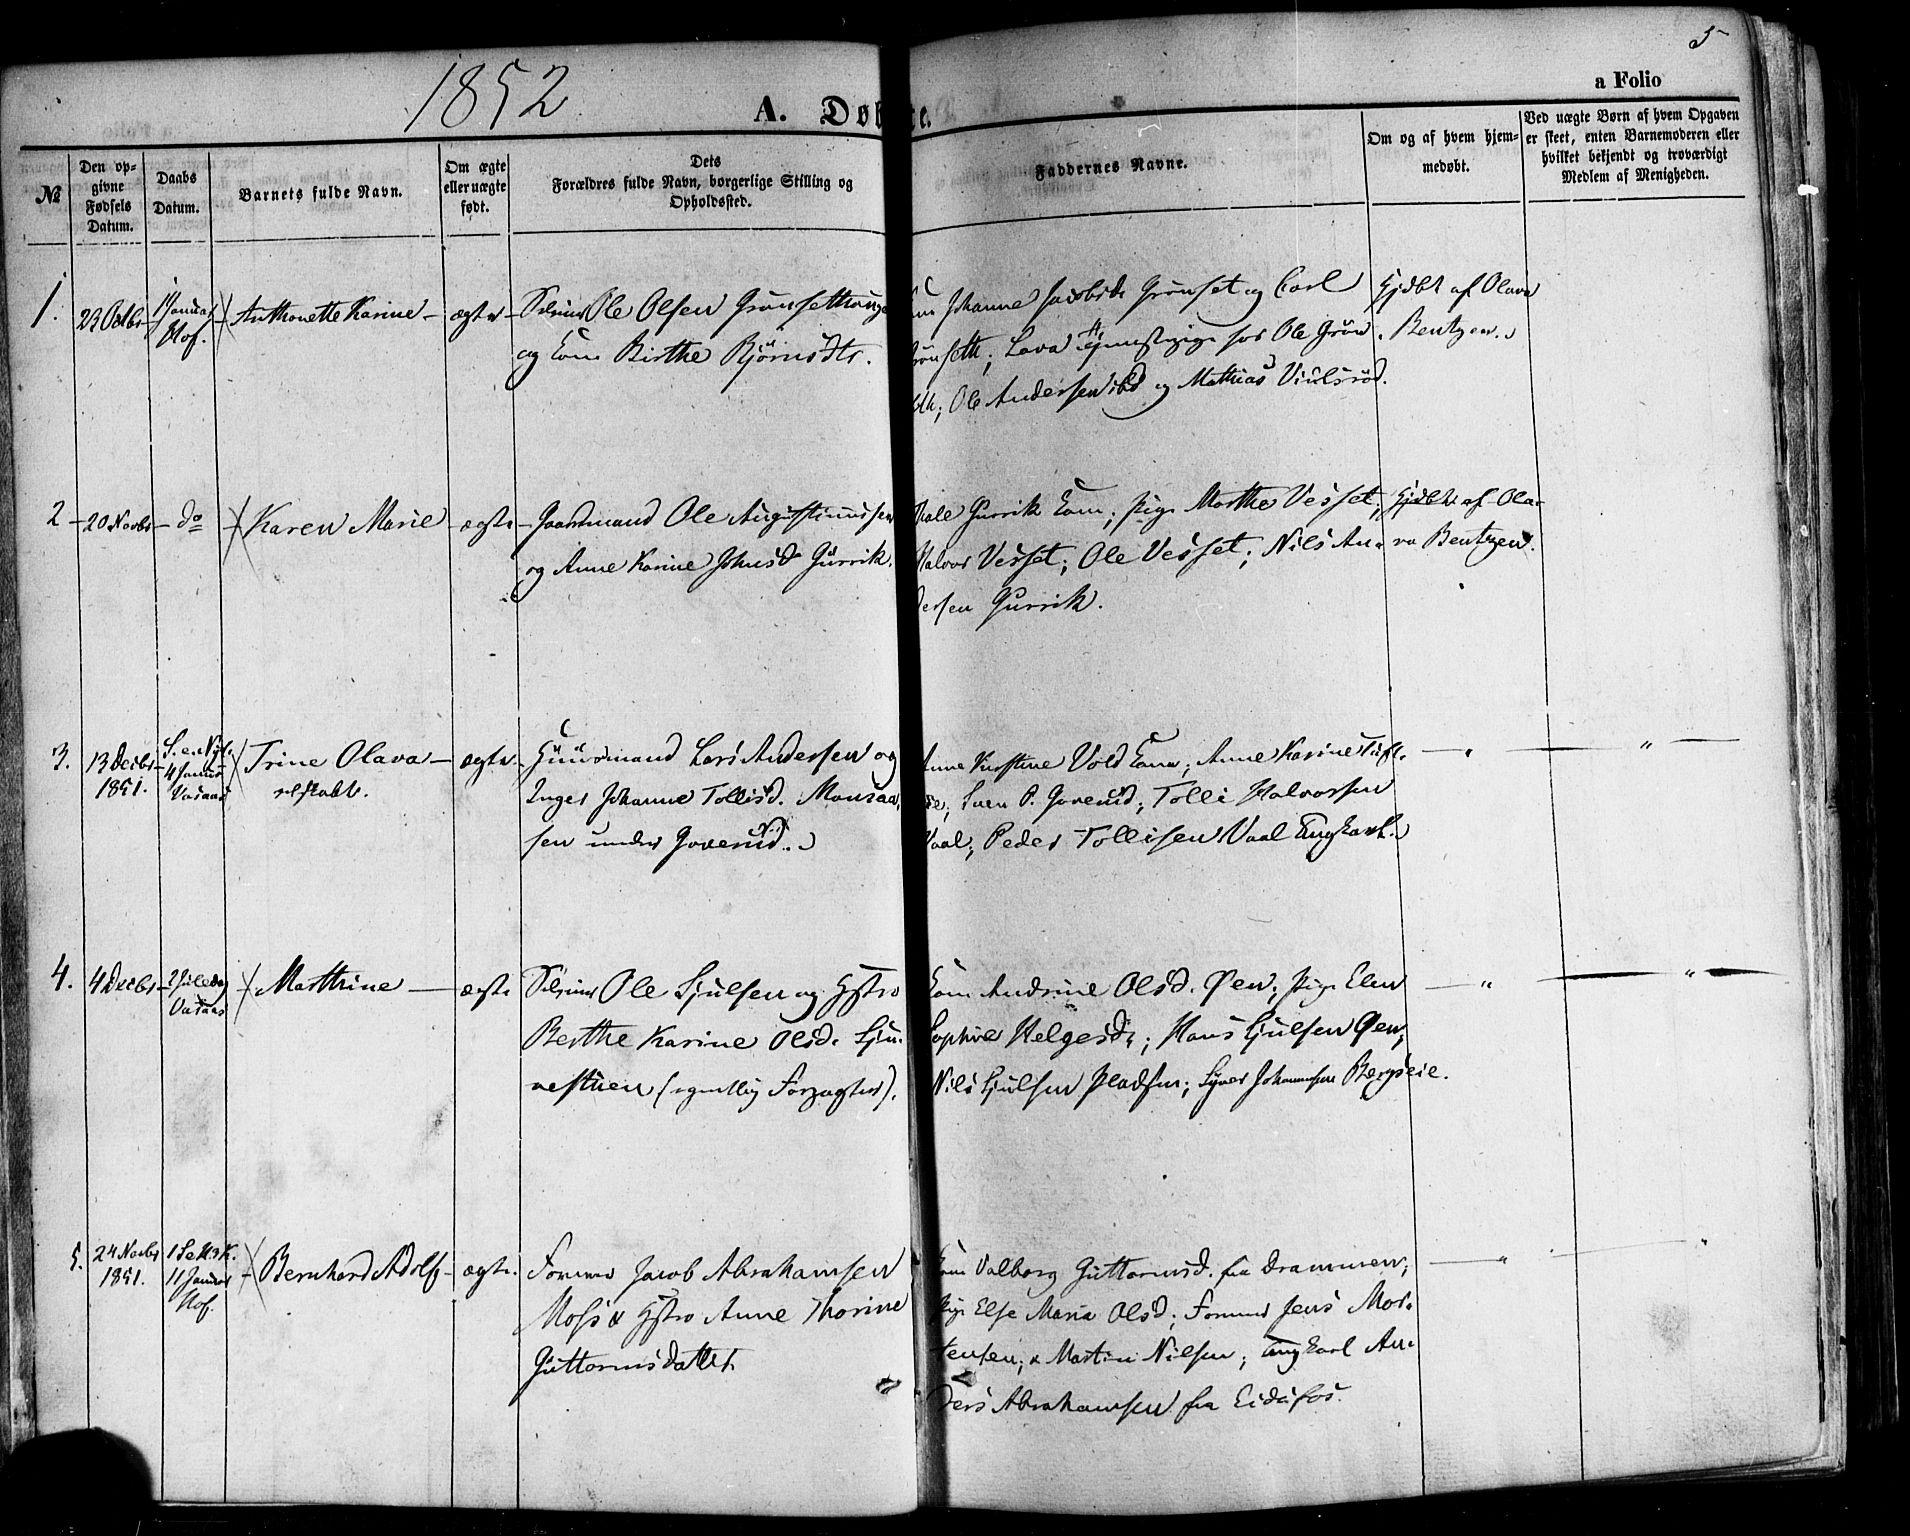 1852
5
A. Døbte.
a Folio
№
Den op-
givne
Fødsels
Datum.
Daabs
Datum.
Barnets fulde Navn.
Om ægte
eller uægte
født.
Dets
Forældres fulde Navn, borgerlige Stilling og
Opholdssted.
Faddernes Navne.
Om og af hvem hjem-
medøbt.
Ved uægte Børn af hvem Opgaven
er skeet, enten Barnemoderen eller
hvilket bekjendt og troværdigt
Medlem af Menigheden.
1.
23 Octbr
1 Januar
Hof.
Anthonette Karine
ægte
Ole Olsen
og Kone Birthe Bjørnsdtr.
Johanne Jacobsdt. Grønset og Carl
Grønseth; Lava
Ole Grøn
seth; Ole Andersen ibd og Mathias
Hjdbt af Olava
Bentzen.
2
20 Novbr
do
Karen Marie
ægte
Gaardmand Ole Augustinussen
og Anne Karine Johnsd Gurrik.
Gurrik Kone; Pige Marthe Vesset;
Halvor Vesset; Ole Vesset; Nils An-
dersen Gurrik.
Hjdbt. af Ola-
va Bentzen.
3.
13 Decbr
1851.
S. e. Nyt.
4 Januar
Vasaas
Trine Olava
ægte
Huusmand Lars Andersen og
Inger Johanne Tollisd.
under Goverud.
Anne Kirstine Vold Kone; Anne Karine
P. Goverud; Tolli Halvorsen
Vaal; Peder Tollisen Vaal Ungkarl.
"
"
4.
4 Decbr
2 Juledag
Vasaas
Marthine
ægte
Ole Sjulsen og Hstro
Berthe Karine Olsd.
(egentlig Forpagter).
Kone Andrine Olsd. Øen; Pige Elen
Sophie Helgesd.; Hans Sjulsen Øen;
Nils Sjulsen Pladsen; Syver Johannesen Bergseie.
"
"
5.
24 Novbr
1851.
1 S. e. H. 3 K.
11 Januar
Hof.
Bernhard Adolf
ægte
Former Jacob Abrahamsen
Moss & Hstro Anne Thorine
Guttormsdatter.
Kone Valborg Guttormsd. fra Drammen;
Pige Else Maria Olsd; Former Jens Mor-
tensen; & Martin Nilsen; Ungkarl An-
ders Abrahamsen fra Eidsfos.
"
"